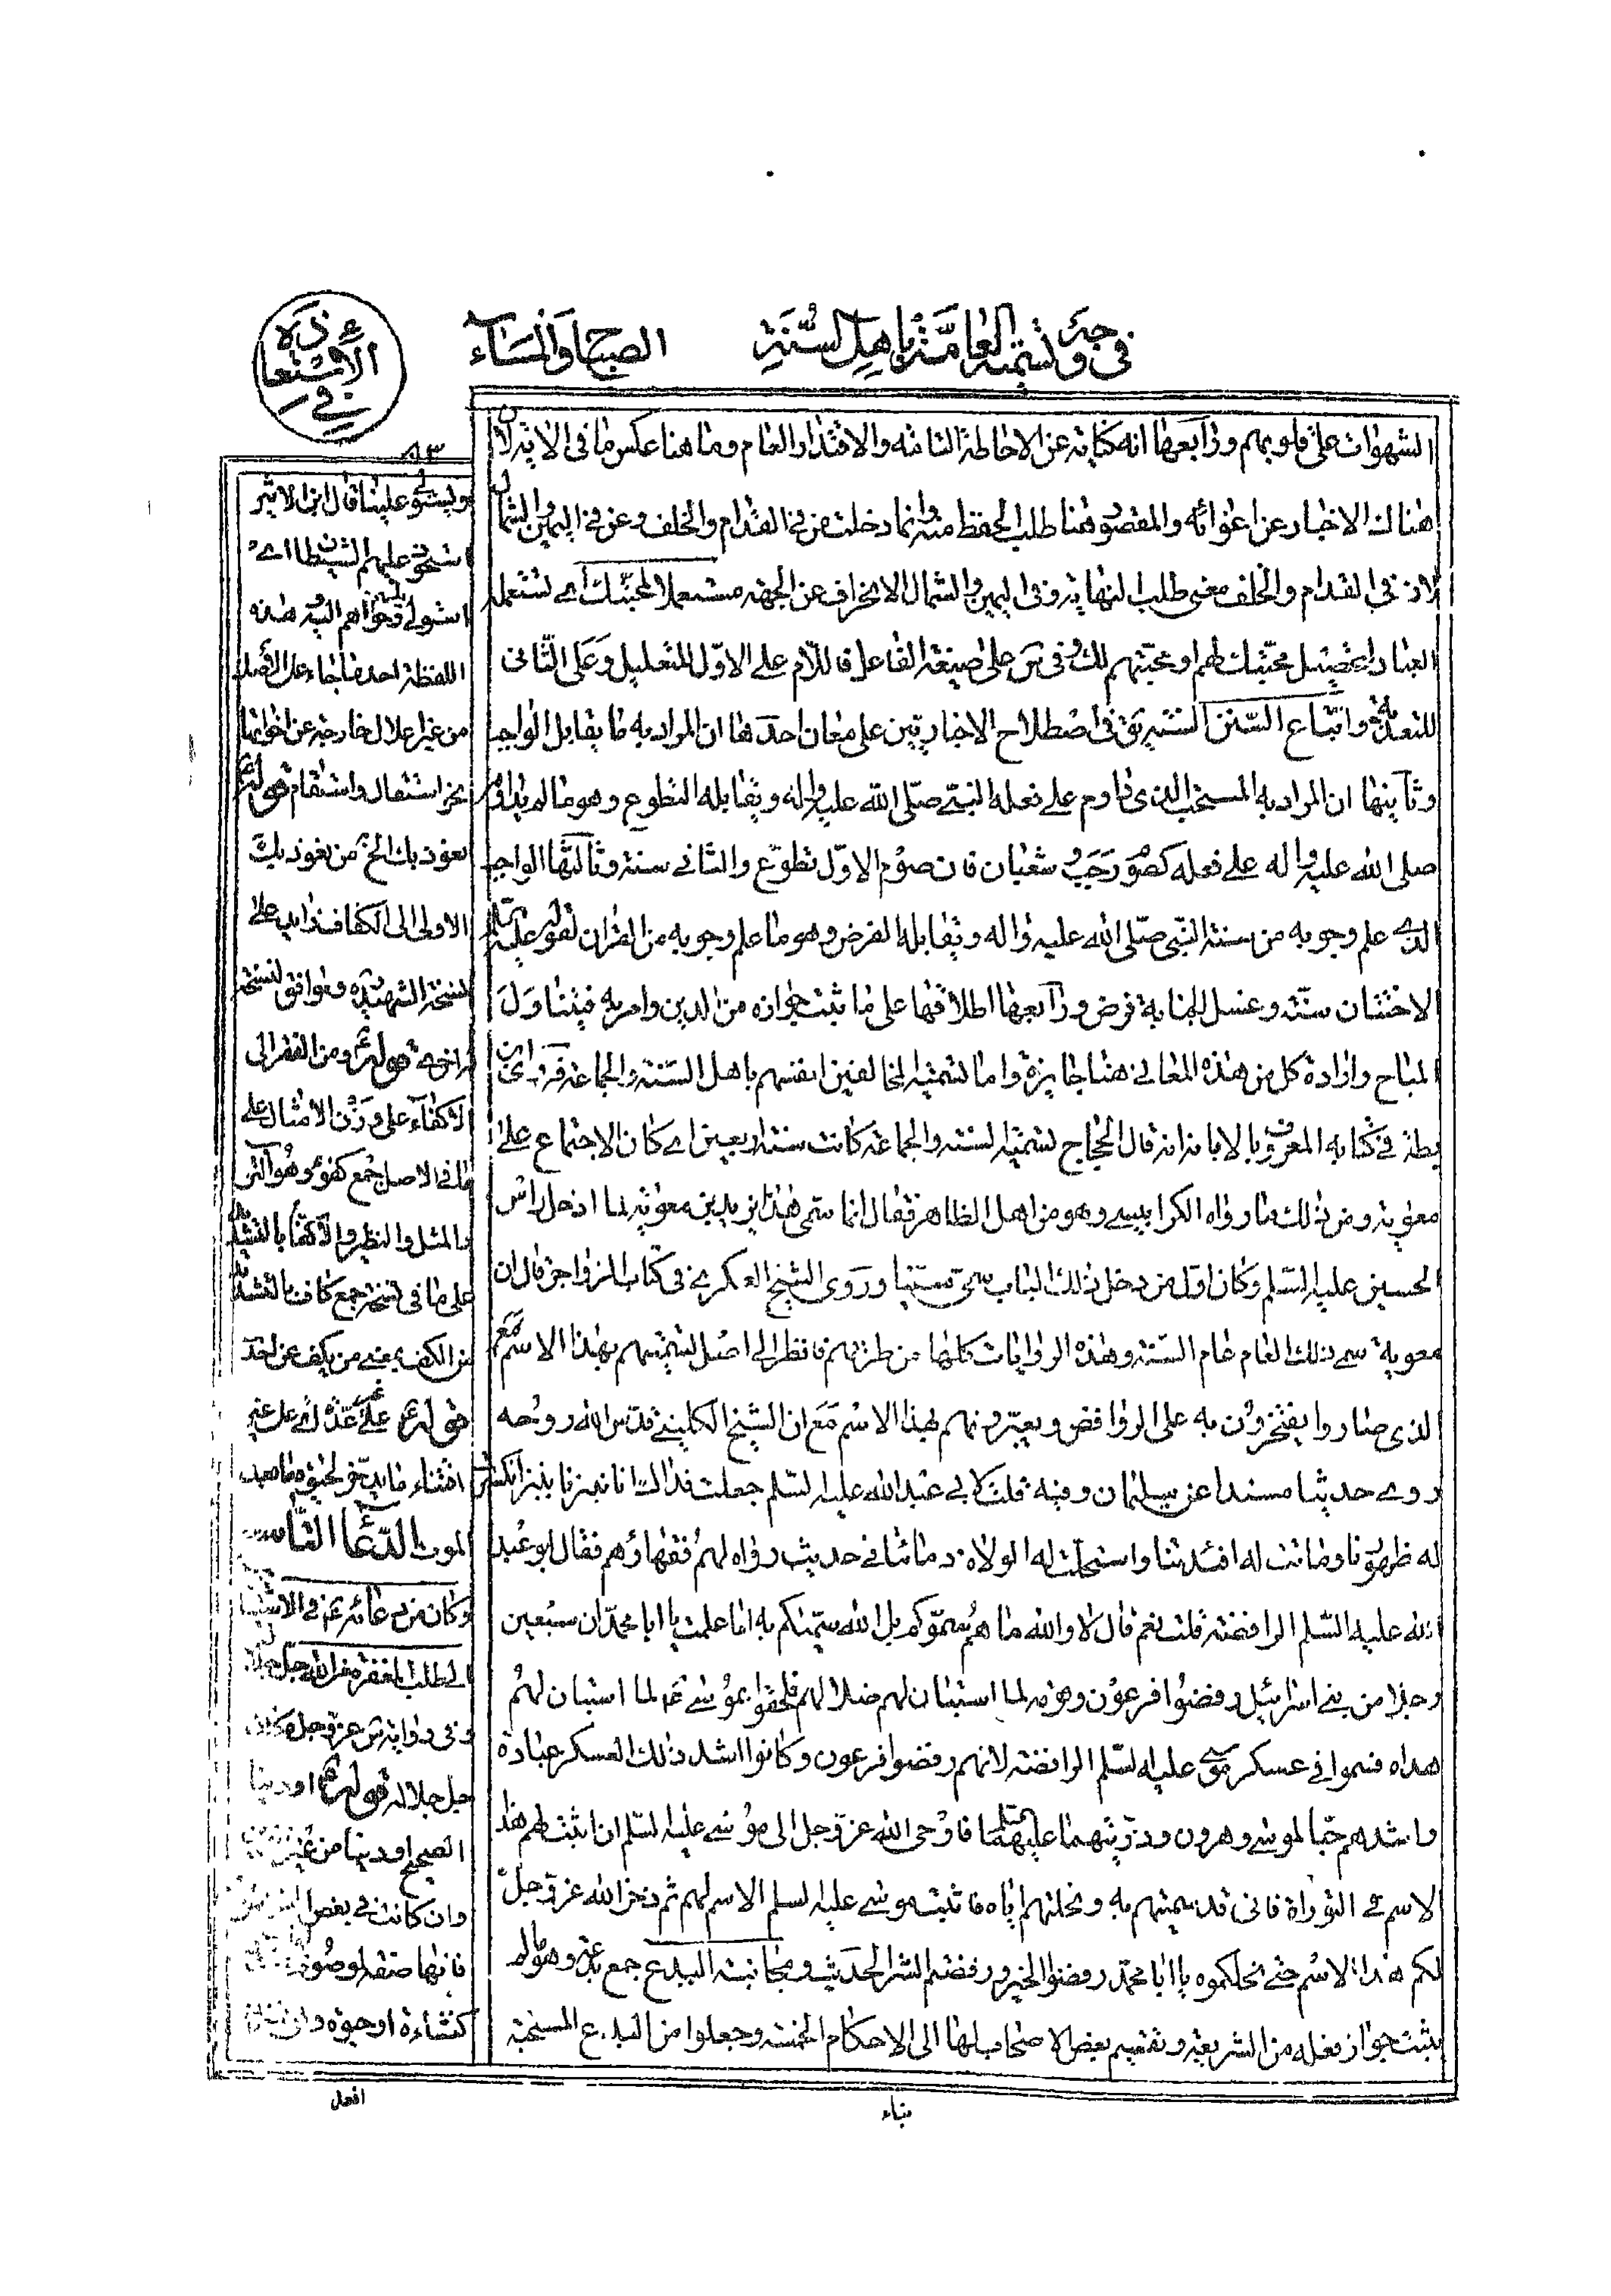 في وجه تسمية العامة باهل السنة
الصباح والمساء
في الاستعاذة
٨٣
الشهوات على قلوبهم ورابعها انه كناية عن الاحاطة التامة والاقتدار العام وما هنا عكس ما في الاية لان
هناك الاخبار عن اغوائه والمقصود هنا طلب الحفظ منه وانما دخلت من في القدام والخلف وعن في اليمين والشمال
لان في القدام والخلف معنى طلب النهاية وفي اليمين والشمال الانحراف عن الجهة مستعملا لمحبتك اي تستعمله
العباد لتحصيل محبتك لهم او محبتهم لك وفي س على صيغة الفاعل فاللام على الاول للتعليل وعلى الثاني
للتعدية واتباع السنن السنة تق في اصطلاح الاخباريين على معان احدها ان المراد به ما يقابل الواجب
وثانيها ان المراد به المستحب الذي داوم على فعله النبي صلى الله عليه واله ويقابله التطوع وهو ما لم يداوم
صلى الله عليه واله على فعله كصوم رجب وشعبان فان صوم الاول تطوع والثاني سنة وثالثها الواجب
الذي علم وجوبه من سنة النبي صلى الله عليه واله ويقابله الفرض وهو ما علم وجوبه من القران لقوله عليه السلم
الاختتان سنة وغسل الجنابة فرض ورابعها اطلاقها على ما ثبت جوازه من الدين وامر به فيتناول
المباح وارادة كل من هذه المعاني هنا جايزة واما تسمية المخالفين انفسهم باهل السنة والجماعة فروى ابن
بطة في كتابه المعروف بالابانة انه قال الحجاج لتسمية السنة والجماعة كانت سنة اربعين اي كان الاجتماع على
معوية ومن ذلك ما رواه الكرابيسي وهو من اهل الظاهر فقال انما سمى هذا يزيد بن معوية لما ادخل راس
الحسين عليه السلم وكان اول من دخل ذلك الباب سمي سنيا وروى الشيخ العسكري في كتاب الزواجر قال ان
معوية سمى ذلك العام عام السنة وهذه الروايات كلها من طرقهم فانظر الى اصل تسميتهم بهذا الاسم مع
الذي صاروا يفتخرون به على الروافض ويعيرونهم بهذا الاسم مع ان الشيخ الكليني قدس الله روحه
روى حديثا مسندا عن سليمان وفيه قلت لابي عبد الله عليه السلم جعلت فداك انا نبزنا بنبز انكسرت
له ظهورنا وماتت له افئدتنا واستحلت له الولاة دمائنا في حديث رواه لهم فقهاؤهم فقال ابو عبد
الله عليه السلم الرافضة قلت نعم قال لا والله ما هم سموكم بل الله سميكم به اما علمت يا ابا محمد ان سبعين
رجلا من بني اسرائيل رفضوا فرعون وقومه لما استبان لهم ضلالهم فلحقوا بموسى ع لما استبان لهم
هداه فسموا في عسكر موسى عليه السلم الرافضة لانهم رفضوا فرعون وكانوا اشد ذلك العسكر عبادة
واشدهم حبا لموسى وهرون وذريتهما عليهما السلم فاوحى الله عز وجل الى موسى عليه السلم ان اثبت لهم هذا
الاسم في التوراة فاني قد سميتهم به ونحلتهم اياه فاثبت موسى عليه السلم الاسم لهم ثم ذخر الله عز وجل
لكم هذا الاسم حتى نحلكموه يا ابا محمد رفضوا الخير ورفضتم الشر الحديث ومجانبة البدع جمع بدعة وهو ما لم
يثبت جواز فعله من الشريعة وتقسيم بعض الاصحاب لها الى الاحكام الخمسة وجعلوا من البدع المستحبة
بناء
ويستولي علينا قال ابن الاثير
استحوذ عليهم الشيطان اي
استولى عليهم وحواهم اليه وهذه
اللفظة احد ما جاء على الاصل
من غير اعلال خارجة عن اخواتها
نحو استقال واستقام قوله
نعوذ بك الخ من نعوذ بك
الاولى الى الكفاف زايد على
نسخة الشهيد ره وموافق لنسخة
اخرى قوله ومن الفقر الى
الاكفاء على وزن الامثال على
ما في الاصل جمع كفؤ وهو
المثل والنظير والاكفاء بالتشديد
على ما في نسخة جمع كاف بالتشديد
من الكف بمعنى من يكف عن احد
قوله على غير عدة اي على غير
اقتناء ما يدخر لحيوة ما بعد
الموت الدعاء التاسع
وكان من دعائه ع في الاشتياق
الى طلب المغفرة من الله جل جلاله
وفي رواية س عز وجل مكان
جل جلاله قوله او دينا
الصحيح او دنيا من غير
وان كانت في بعض
فانها صفة لموصوف
كنشاءة او حيوة
افعل